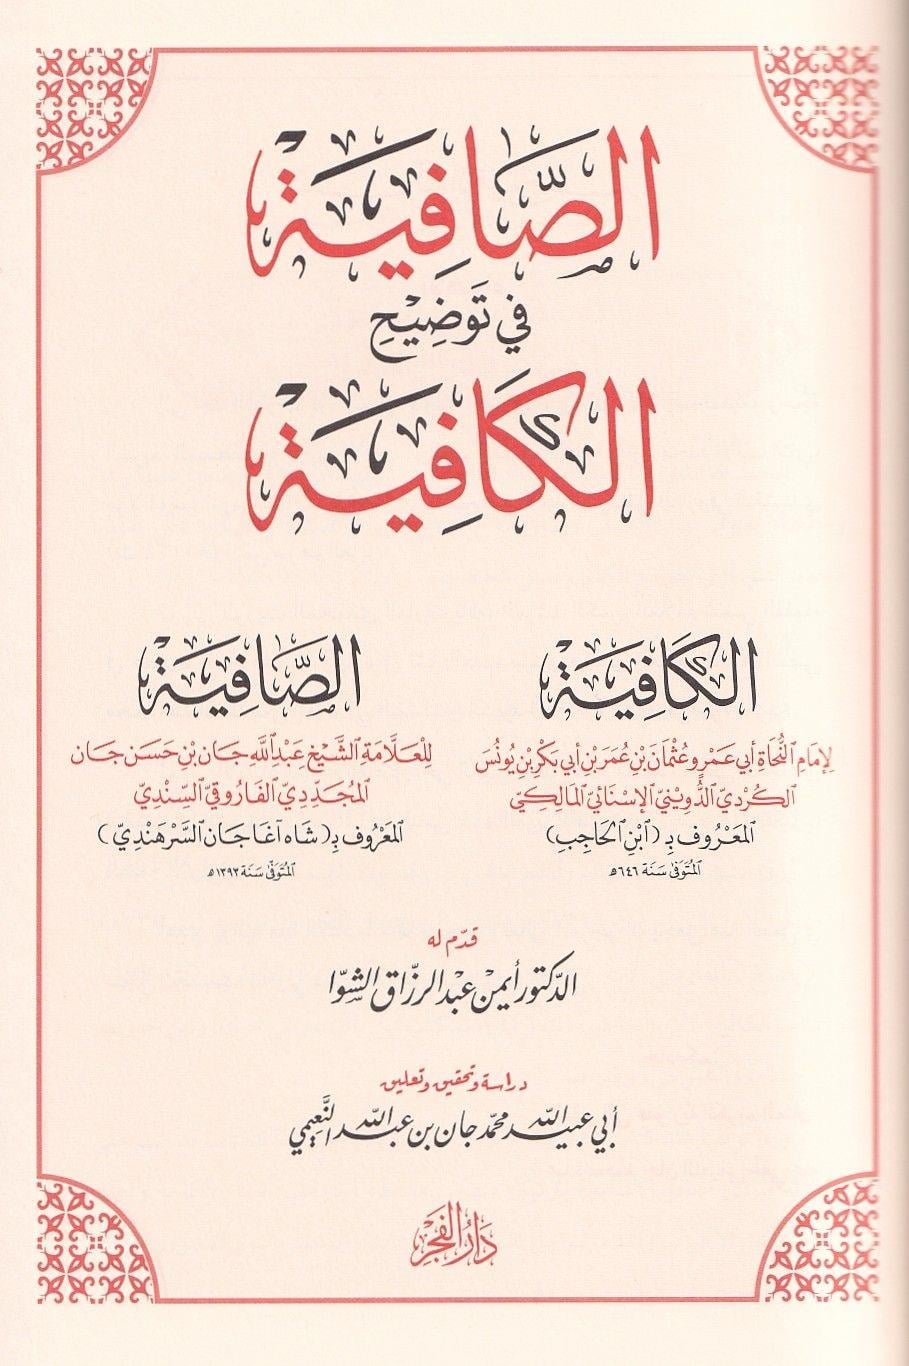 الصَّافِيَة
فِي تَوْضِيْحِ
الكَافِيَة
الكَافِيَة
لِإمَامِ النُّحَاةِ أبي عَمْرٍو عُثْمَانَ بْنِ عُمَرَ بْنِ أبي بَكْرِ بْنِ يُونُسَ
الكُرْدِيّ الدُّوِينيّ الإسْنَائيّ المَالِكِيّ
المَعْرُوف بِـ (ابْنِ الحَاجِبِ)
المُتَوَفّى سَنَة ٦٤٦ه
الصَّافِيَة
لِلْعَلَّامَةِ الشَّيْخ عَبْدِ اللَّه جَان بْنِ حَسَن جَان
المُجَدِّدِيّ الفَارُوقِيّ السِّنْدِيّ
المَعْرُوف بِـ (شَاه آغَا جَان السَّرْهَنْدِيّ)
المُتَوَفّى سَنَة ١٣٩٣ه
قدّم له
الدّكتور أيمن عبد الرزّاق الشوّا
دراسة وتحقيق وتعليق
أبي عبيد الله محمّد جان بن عبد الله النَّعِيمي
دَارُ الفَجْرِ